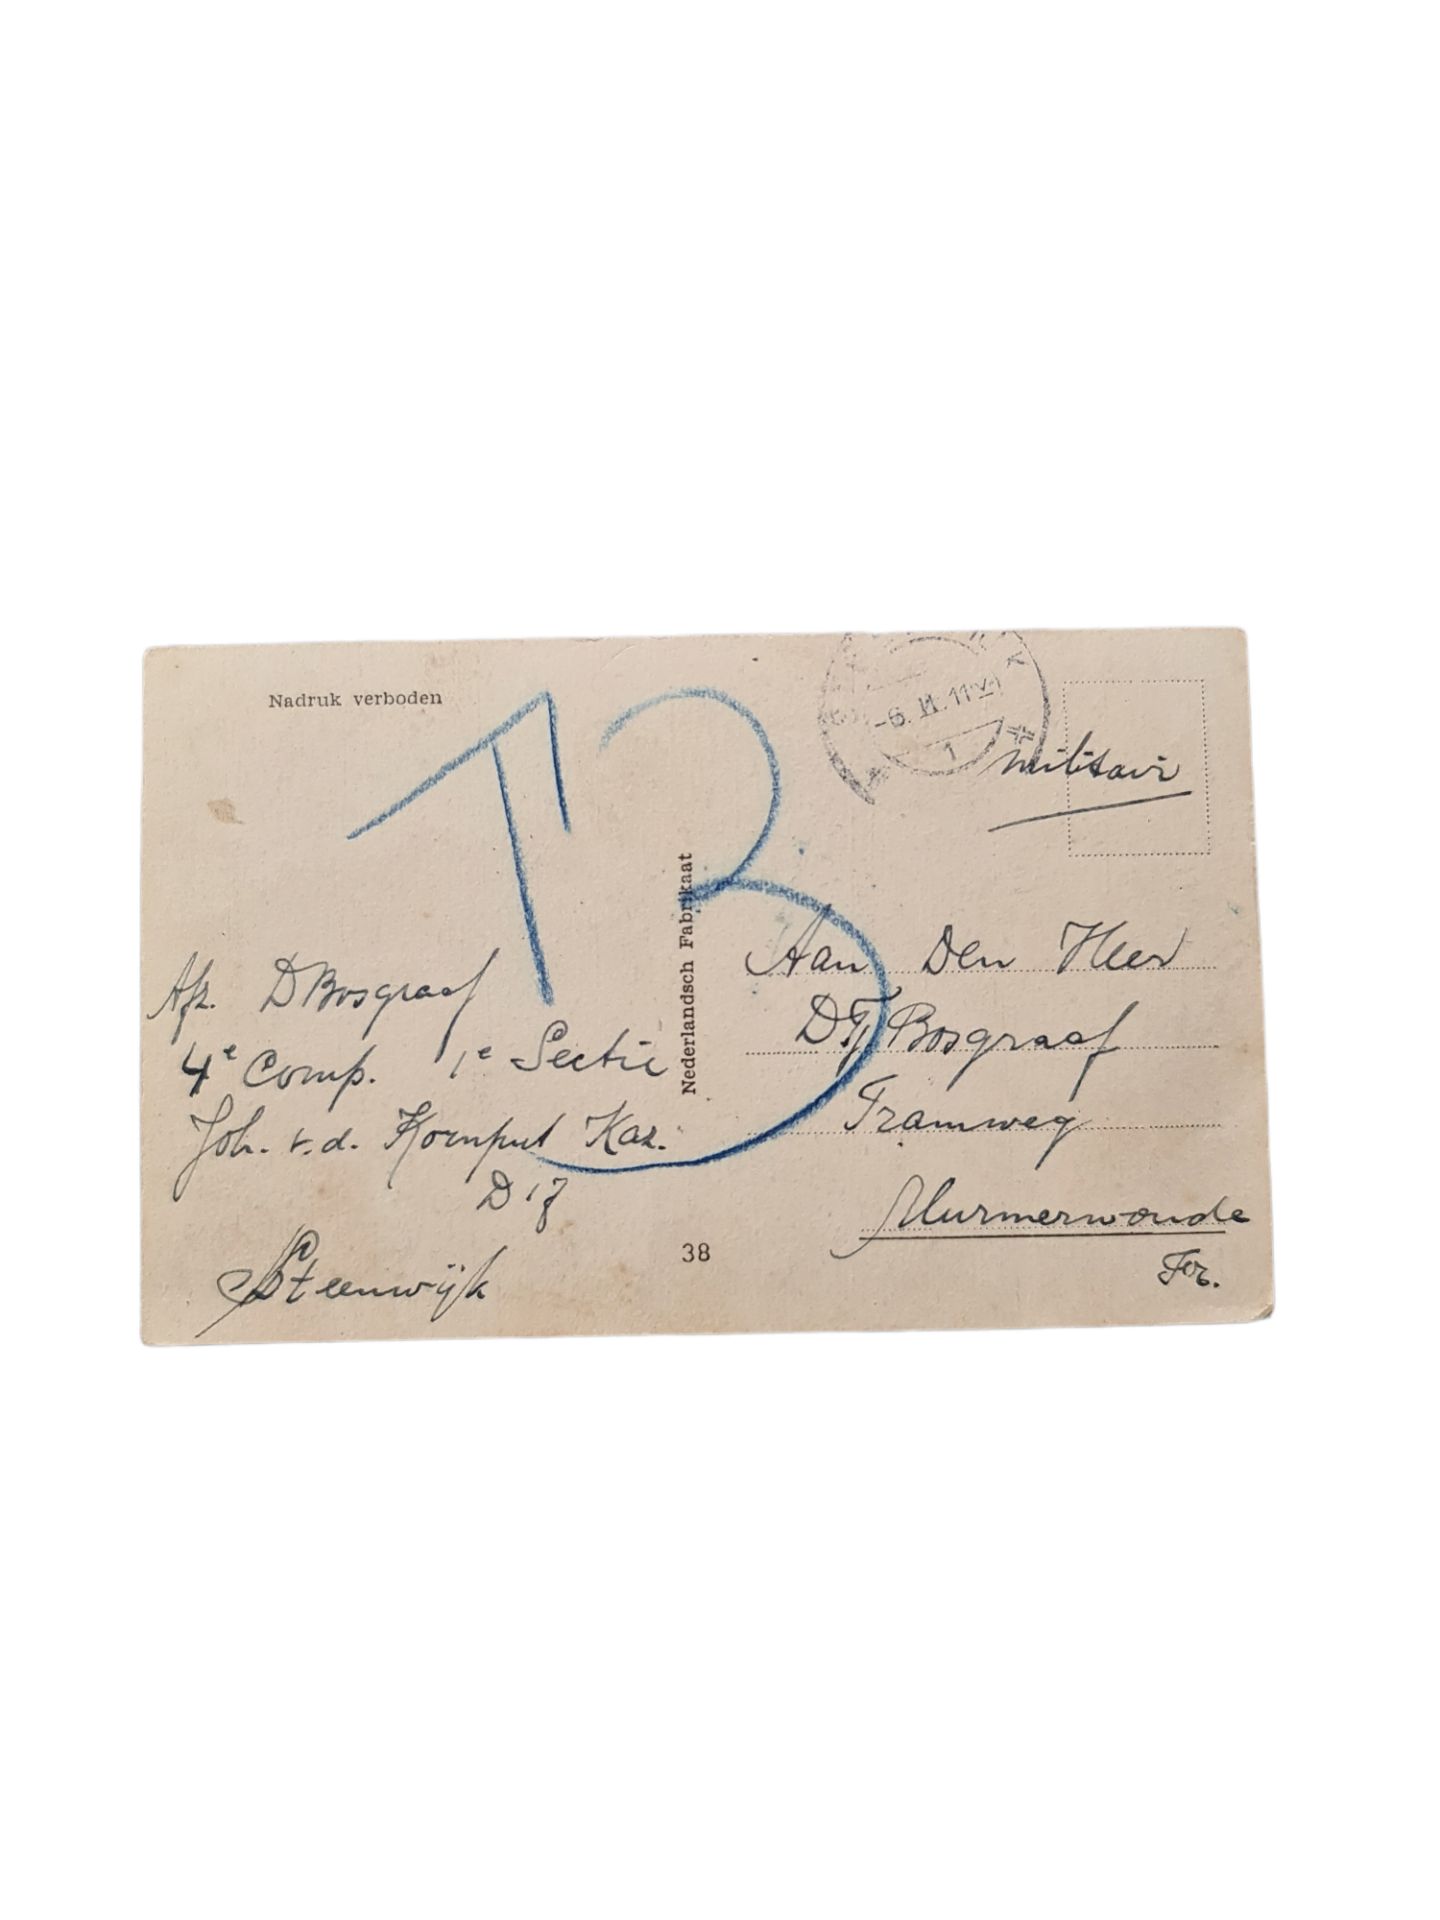 Nadruk verboden
13
-6. 11.
1
militair
Nederlandsch Fabrikaat
Afz. D Bosgraaf
4e Comp. 1e Sectie
Joh. v.d. Kornput Kaz.
D 17
Steenwijk
38
Aan Den Heer
D.Tj Bosgraaf
Tramweg
Murmerwoude
Fr.